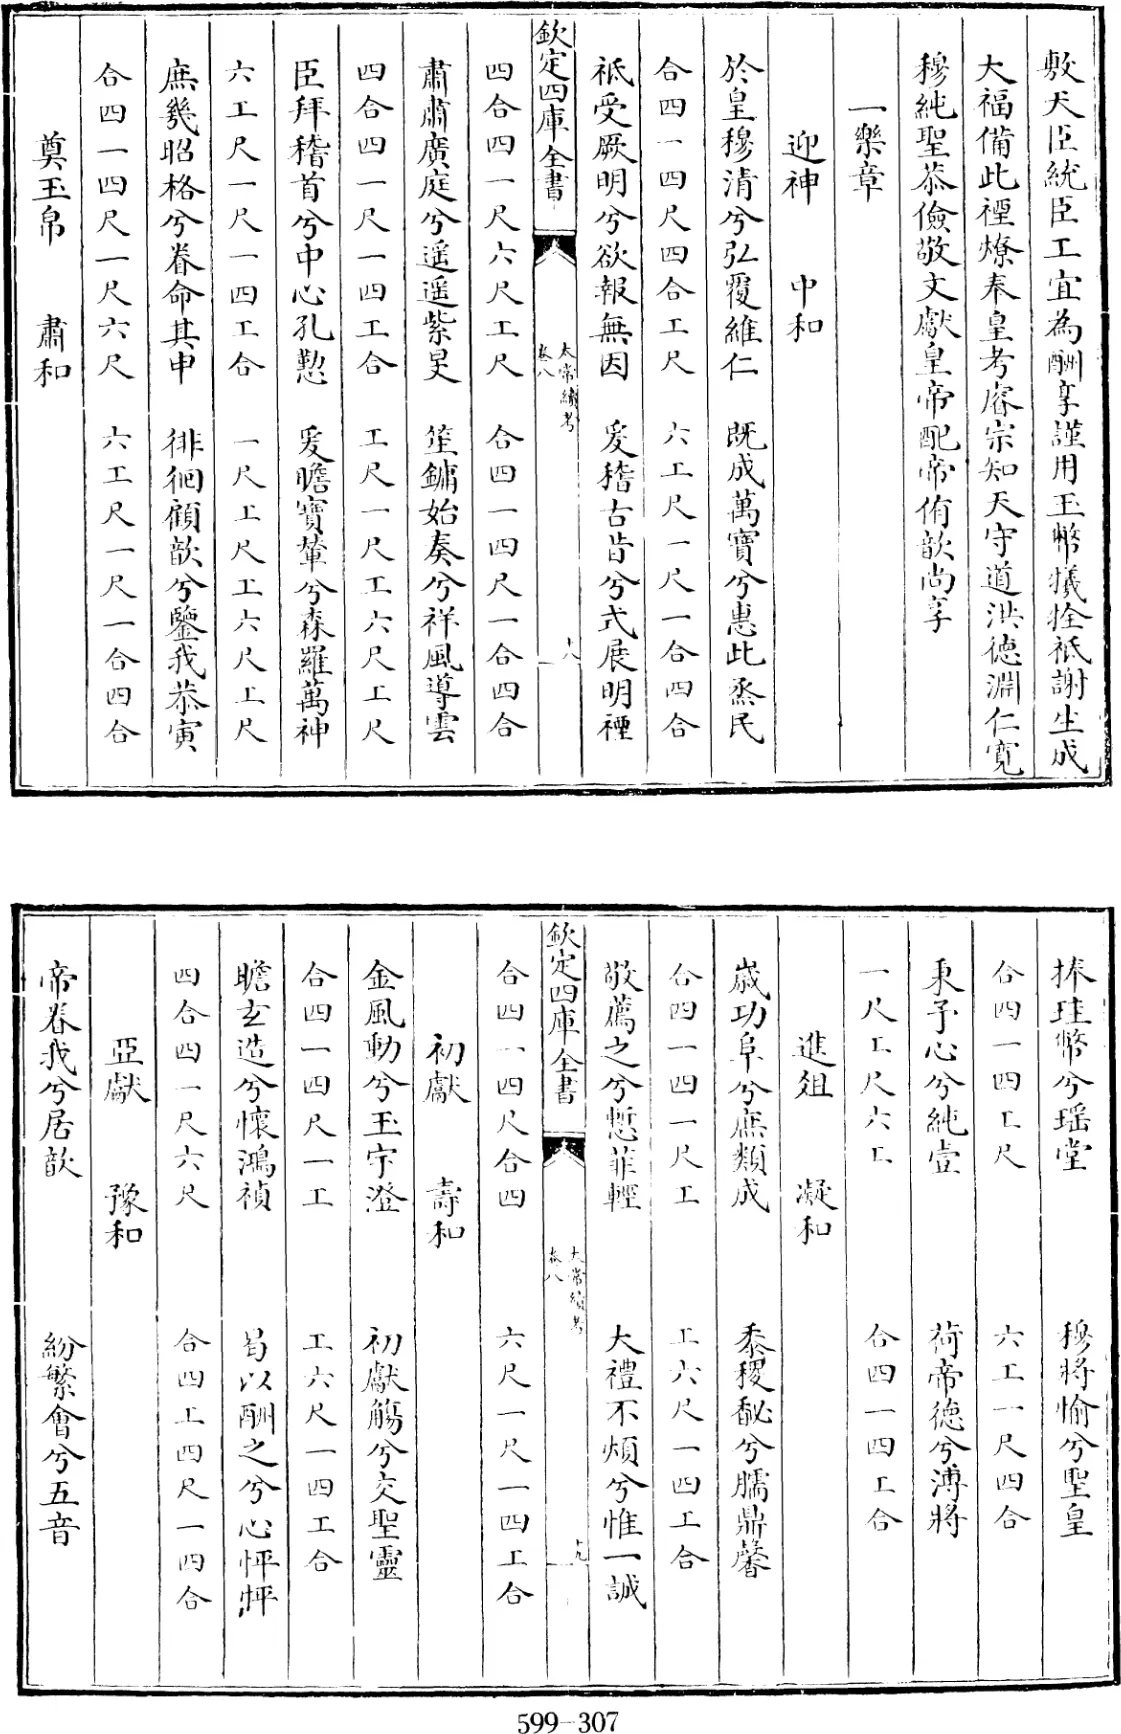 敷天臣統臣工宜為酬享謹用玉幣犧牷祇謝生成
大福備此禋燎奉皇考睿宗知天守道洪德淵仁寬
穆純聖恭儉敬文獻皇帝配帝侑歆尚享
一樂章
迎神 中和
於皇穆清兮弘覆維仁 既成萬寶兮惠此烝民
合四一四尺四合工尺 六工尺一尺一合四合
祇受厥明兮欲報無因 爰稽古昔兮式展明禋
欽定四庫全書 太常續考 卷八 十八
四合四一尺六尺工尺 合四一四尺一合四合
肅肅廣庭兮遥遥紫旻 笙鏞始奏兮祥風導雲
四合四一尺一四工合 工尺一尺工六尺工尺
臣拜稽首兮中心孔懃 爰瞻寶輦兮森羅萬神
六工尺一尺一四工合 一尺工尺工六尺工尺
庶幾昭格兮眷命其申 徘徊顧歆兮鑒我恭寅
合四一四尺一尺六尺 六工尺一尺一合四合
奠玉帛 肅和
捧珪幣兮瑶堂 穆將愉兮聖皇
合四一四工尺 六工一尺四合
秉予心兮純壹 荷帝德兮溥將
一尺工尺六工 合四一四工合
進俎 凝和
歲功阜兮庶類成 黍稷馝兮臑鼎馨
合四一四一尺工 工六尺一四工合
敬薦之兮慙菲輕 大禮不煩兮惟一誠
欽定四庫全書 太常續考 卷八 十九
合四一四尺合四 六尺一尺一四工合
初獻 壽和
金風動兮玉宇澄 初獻觴兮交聖靈
合四一四尺一工 工六尺一四工合
瞻玄造兮懷鴻禎 曷以酬之兮心怦怦
四合四一尺六尺 合四工四尺一四合
亞獻 豫和
帝眷我兮居歆 紛繁會兮五音
599-307